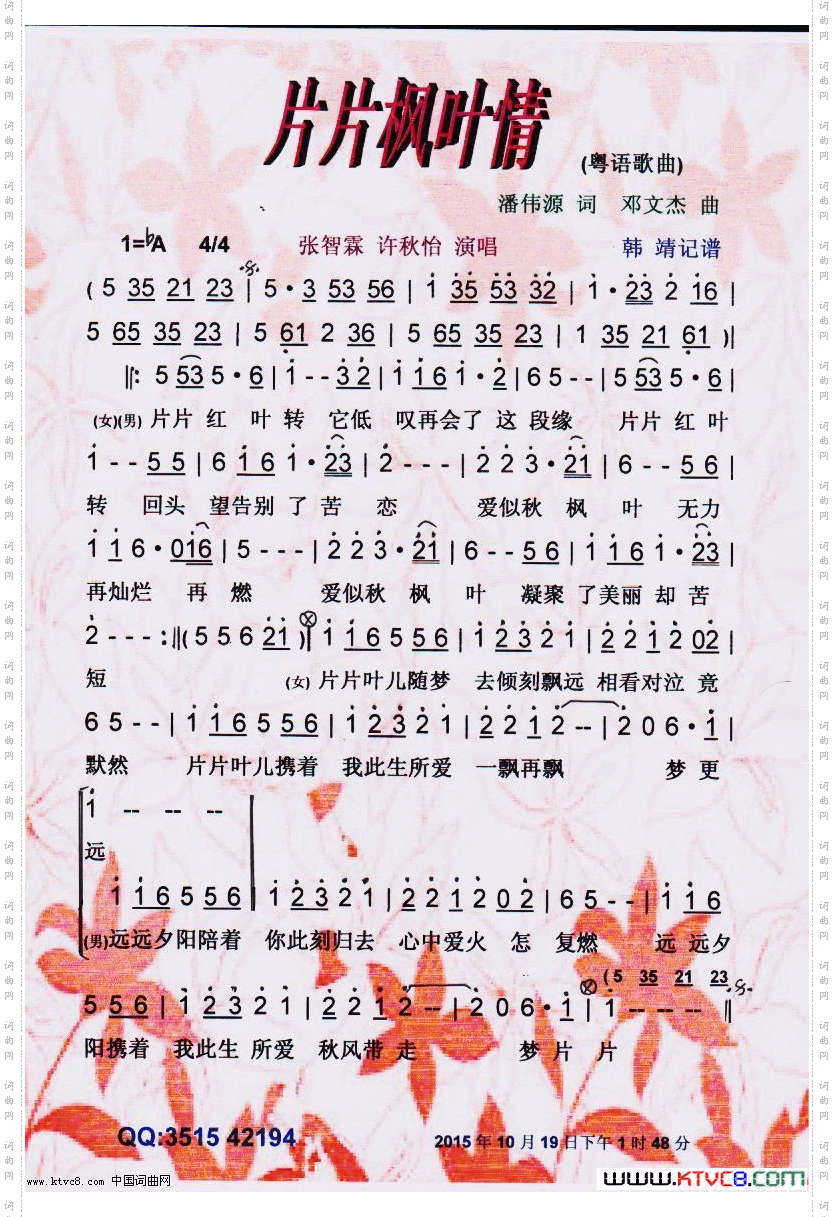 片片枫叶情
(粤语歌曲)
潘伟源 词 邓文杰 曲
1=♭A 4/4 张智霖 许秋怡 演唱 韩 靖记谱
( 5 35 21 23 | 5 · 3 53 56 | 1 35 53 32 | 1 · 23 2 16 |
5 65 35 23 | 5 61 2 36 | 5 65 35 23 | 1 35 21 61 )||
||: 5 53 5 · 6 | 1 - - 3 2 | 1 1 6 1 · 2 | 6 5 - - | 5 53 5 · 6 |
(女)(男) 片片 红 叶 转 它低 叹再会了 这 段缘 片片 红叶
1 - - 5 5 | 6 1 6 1 · 23 | 2 - - - | 2 2 3 · 21 | 6 - - 5 6 |
转 回头 望告别 了 苦 恋 爱似秋 枫 叶 无力
1 1 6 · 016 | 5 - - - | 2 2 3 · 21 | 6 - - 5 6 | 1 1 6 1 · 23 |
再灿烂 再 燃 爱似秋 枫 叶 凝聚 了美丽 却 苦
2 - - - :||( 5 5 6 21 )| 1 1 6 5 5 6 | 1 2 3 2 1 | 2 2 1 2 02 |
短 (女) 片片叶儿随梦 去倾刻飘远 相看对泣 竟
6 5 - - | 1 1 6 5 5 6 | 1 2 3 2 1 | 2 2 1 2 -- | 2 0 6 · 1 |
默然 片片叶儿携着 我此生所爱 一飘再飘 梦 更
1 -- -- --
远
1 1 6 5 5 6 | 1 2 3 2 1 | 2 2 1 2 0 2 | 6 5 - - | 1 1 6
(男)远远夕阳陪着 你此刻归去 心中爱火 怎 复燃 远 远夕
( 5 35 21 23
5 5 6 | 1 2 3 2 1 | 2 2 1 2 -- | 2 0 6 · 1 | 1 -- -- -- ||
阳携着 我此生 所爱 秋风带 走 梦 片 片
QQ:3515 42194
2015 年 10 月 19 日下午 1 时 48 分
www.ktvc8.com 中国词曲网
www.KTVC8.com